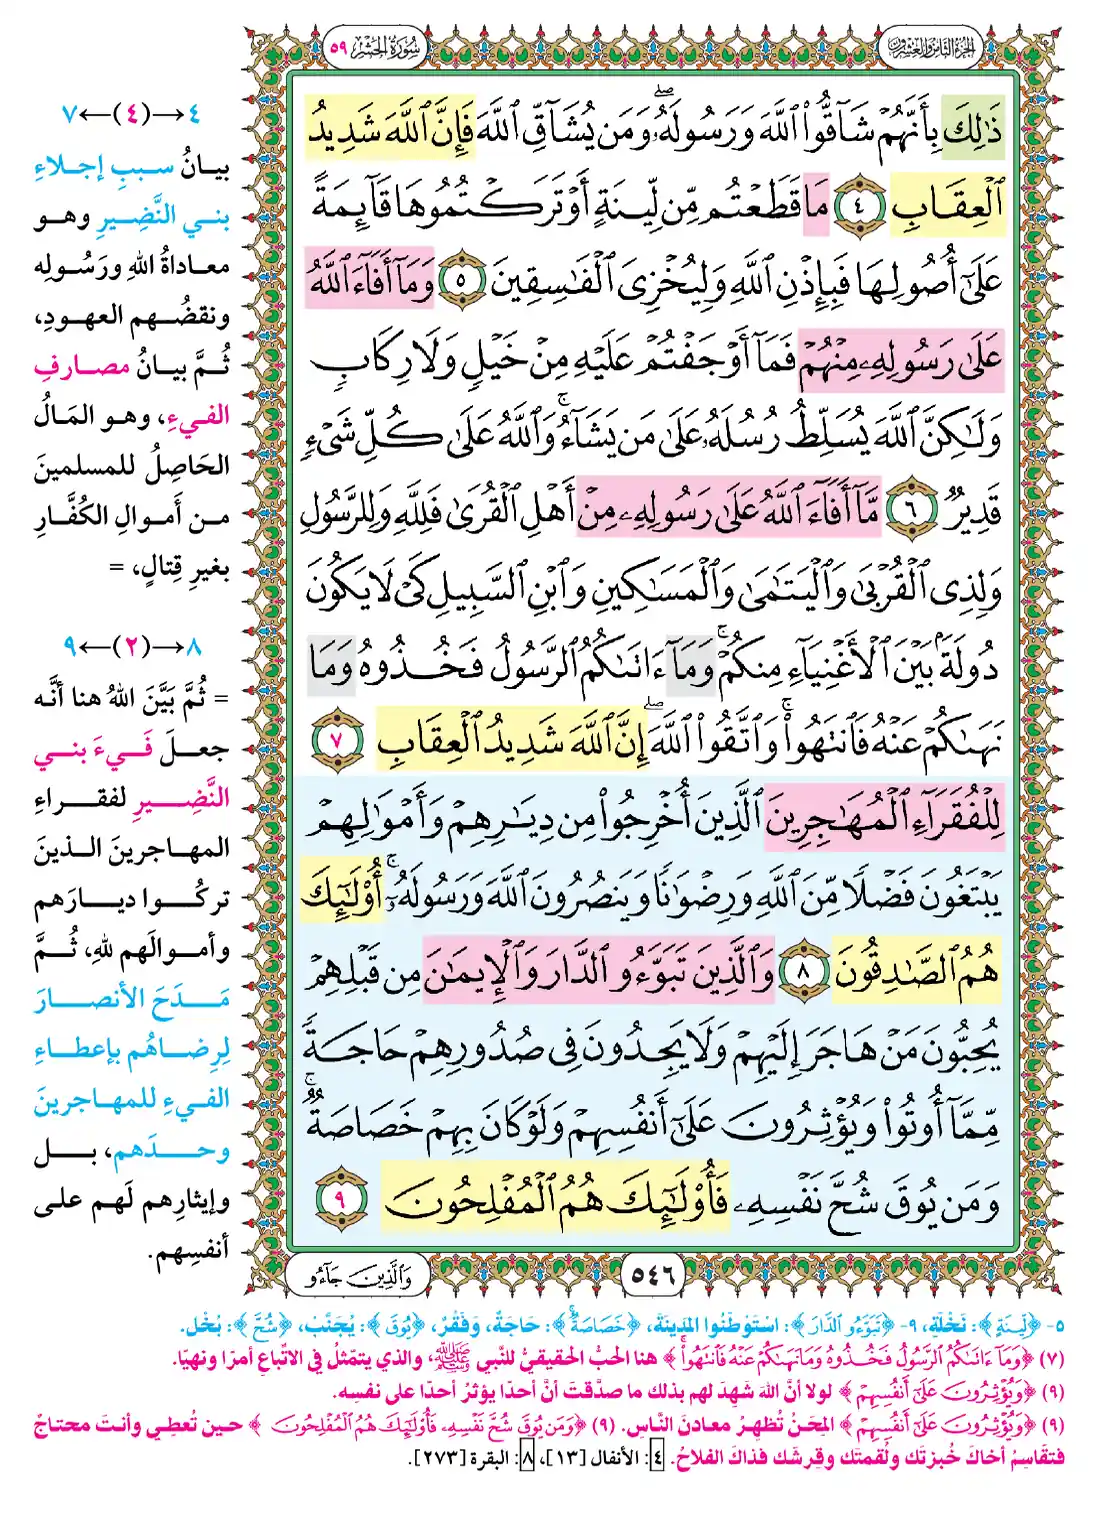 الجزء الثامن والعشرون
سورة الحشر ٥٩
ذَٰلِكَ بِأَنَّهُمْ شَآقُّوا۟ ٱللَّهَ وَرَسُولَهُۥ ۖ وَمَن يُشَآقِّ ٱللَّهَ فَإِنَّ ٱللَّهَ شَدِيدُ
ٱلْعِقَابِ ٤ مَا قَطَعْتُم مِّن لِّينَةٍ أَوْ تَرَكْتُمُوهَا قَآئِمَةً
عَلَىٰٓ أُصُولِهَا فَبِإِذْنِ ٱللَّهِ وَلِيُخْزِىَ ٱلْفَـٰسِقِينَ ٥ وَمَآ أَفَآءَ ٱللَّهُ
عَلَىٰ رَسُولِهِۦ مِنْهُمْ فَمَآ أَوْجَفْتُمْ عَلَيْهِ مِنْ خَيْلٍ وَلَا رِكَابٍ
وَلَـٰكِنَّ ٱللَّهَ يُسَلِّطُ رُسُلَهُۥ عَلَىٰ مَن يَشَآءُ ۚ وَٱللَّهُ عَلَىٰ كُلِّ شَىْءٍ
قَدِيرٌ ٦ مَّآ أَفَآءَ ٱللَّهُ عَلَىٰ رَسُولِهِۦ مِنْ أَهْلِ ٱلْقُرَىٰ فَلِلَّهِ وَلِلرَّسُولِ
وَلِذِى ٱلْقُرْبَىٰ وَٱلْيَتَـٰمَىٰ وَٱلْمَسَـٰكِينِ وَٱبْنِ ٱلسَّبِيلِ كَىْ لَا يَكُونَ
دُولَةًۢ بَيْنَ ٱلْأَغْنِيَآءِ مِنكُمْ ۚ وَمَآ ءَاتَىٰكُمُ ٱلرَّسُولُ فَخُذُوهُ وَمَا
نَهَىٰكُمْ عَنْهُ فَٱنتَهُوا۟ ۚ وَٱتَّقُوا۟ ٱللَّهَ ۖ إِنَّ ٱللَّهَ شَدِيدُ ٱلْعِقَابِ ٧
لِلْفُقَرَآءِ ٱلْمُهَـٰجِرِينَ ٱلَّذِينَ أُخْرِجُوا۟ مِن دِيَـٰرِهِمْ وَأَمْوَٰلِهِمْ
يَبْتَغُونَ فَضْلًا مِّنَ ٱللَّهِ وَرِضْوَٰنًا وَيَنصُرُونَ ٱللَّهَ وَرَسُولَهُۥٓ ۚ أُو۟لَـٰٓئِكَ
هُمُ ٱلصَّـٰدِقُونَ ٨ وَٱلَّذِينَ تَبَوَّءُو ٱلدَّارَ وَٱلْإِيمَـٰنَ مِن قَبْلِهِمْ
يُحِبُّونَ مَنْ هَاجَرَ إِلَيْهِمْ وَلَا يَجِدُونَ فِى صُدُورِهِمْ حَاجَةً
مِّمَّآ أُوتُوا۟ وَيُؤْثِرُونَ عَلَىٰٓ أَنفُسِهِمْ وَلَوْ كَانَ بِهِمْ خَصَاصَةٌ ۚ
وَمَن يُوقَ شُحَّ نَفْسِهِۦ فَأُو۟لَـٰٓئِكَ هُمُ ٱلْمُفْلِحُونَ ٩
٥٤٦
وَٱلَّذِينَ جَآءُو
٤→(٤)←٧
بيانُ سببِ إجلاءِ
بني النَّضِيرِ وهو
معاداةُ اللهِ ورَسُولِه
ونقضُهم العهودِ،
ثُمَّ بيانُ مصارفِ
الفيءِ، وهو المَالُ
الحَاصِلُ للمسلمينَ
من أموالِ الكُفَّارِ
بغيرِ قِتالٍ، =
٨→(٢)←٩
= ثُمَّ بَيَّنَ اللهُ هنا أنَّه
جعلَ فَيءَ بني
النَّضِيرِ لفقراءِ
المهاجرينَ الذينَ
تركُوا ديارَهم
وأموالَهم للهِ، ثُمَّ
مَدَحَ الأنصارَ
لِرِضاهُم بإعطاءِ
الفيءِ للمهاجرينَ
وحدَهم، بل
وإيثارِهم لَهم على
أنفسِهم.
٥- ﴿لِّينَةٍ﴾: نَخْلَةٍ، ٩- ﴿تَبَوَّءُو ٱلدَّارَ﴾: اسْتَوْطَنُوا المَدِينَةَ، ﴿خَصَاصَةٌ ۚ﴾: حَاجَةٌ، وَفَقْرٌ، ﴿يُوقَ﴾: يُجَنَّبْ، ﴿شُحَّ﴾: بُخْلَ.
(٧) ﴿وَمَآ ءَاتَىٰكُمُ ٱلرَّسُولُ فَخُذُوهُ وَمَا نَهَىٰكُمْ عَنْهُ فَٱنتَهُوا۟ ۚ﴾ هنا الحبُّ الحقيقيُّ للنَّبي ﷺ، والذي يتمثلُ في الاتِّباعِ أمرًا ونهيًا.
(٩) ﴿وَيُؤْثِرُونَ عَلَىٰٓ أَنفُسِهِمْ﴾ لولا أنَّ اللهَ شَهِدَ لهم بذلك ما صدَّقتَ أنَّ أحدًا يؤثرُ أحدًا على نفسِه.
(٩) ﴿وَيُؤْثِرُونَ عَلَىٰٓ أَنفُسِهِمْ﴾ المِحَنُ تُظهِرُ معادنَ النَّاسِ. (٩) ﴿وَمَن يُوقَ شُحَّ نَفْسِهِۦ فَأُو۟لَـٰٓئِكَ هُمُ ٱلْمُفْلِحُونَ﴾ حين تُعطِي وأنتَ محتاجٌ
فتقاسِمُ أخاكَ خُبزتَك ولُقمتَك وقِرشَك فذاكَ الفلاحُ. ٤: الأنفال [١٣]، ٨: البقرة [٢٧٣].